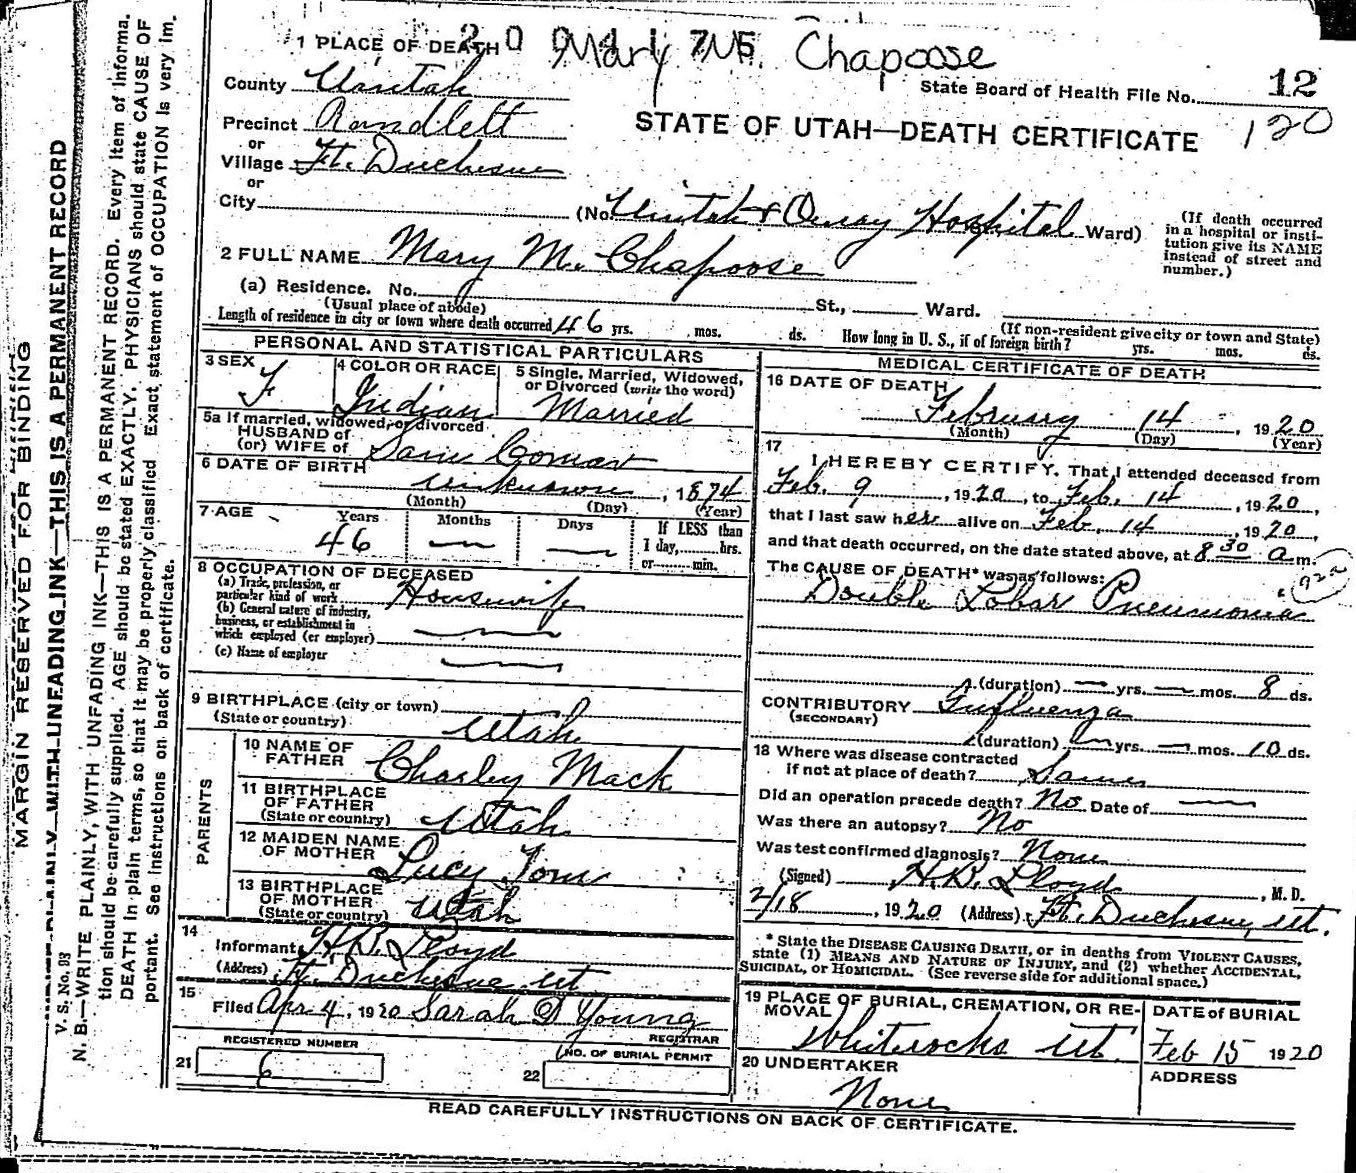 1 PLACE OF DEATH
Mary M. Chapoose
12
State Board of Health File No.
120
County Uintah
STATE OF UTAH—DEATH CERTIFICATE
Precinct Randlett
or
Village Ft. Duchesne
or
City
(No. Uintah & Ouray Hospital Ward)
(If death occurred
in a hospital or insti-
tution give its NAME
instead of street and
number.)
2 FULL NAME Mary M. Chapoose
(a) Residence. No. St., Ward.
(Usual place of abode)
(If non-resident give city or town and State)
Length of residence in city or town where death occurred 46 yrs. mos. ds. How long in U. S., if of foreign birth? yrs. mos. ds.
PERSONAL AND STATISTICAL PARTICULARS
3 SEX
F
4 COLOR OR RACE
Indian
5 Single, Married, Widowed,
or Divorced (write the word)
Married
5a If married, widowed, or divorced
HUSBAND of
(or) WIFE of Sam
6 DATE OF BIRTH
unknown, 1874
(Month) (Day) (Year)
7 AGE
Years Months Days
46 — —
If LESS than
1 day, hrs.
or min.
8 OCCUPATION OF DECEASED
(a) Trade, profession, or
particular kind of work Housewife
(b) General nature of industry,
business, or establishment in
which employed (or employer) —
(c) Name of employer —
9 BIRTHPLACE (city or town)
(State or country) Utah
PARENTS
10 NAME OF
FATHER Charley Mack
11 BIRTHPLACE
OF FATHER
(State or country) Utah
12 MAIDEN NAME
OF MOTHER Lucy Tom
13 BIRTHPLACE
OF MOTHER
(State or country) Utah
14
Informant H.B. Lloyd
(Address) Ft. Duchesne Ut
15
Filed Apr 4, 1920 Sarah D Young
REGISTRAR
REGISTERED NUMBER
21 6
NO. OF BURIAL PERMIT
22
MEDICAL CERTIFICATE OF DEATH
16 DATE OF DEATH
February 14, 1920
(Month) (Day) (Year)
17
I HEREBY CERTIFY, That I attended deceased from
Feb. 9, 1920, to Feb. 14, 1920,
that I last saw her alive on Feb. 14, 1920,
and that death occurred, on the date stated above, at 8 30 a m.
The CAUSE OF DEATH* was as follows:
92a
Double Lobar Pneumonia
(duration) — yrs. — mos. 8 ds.
CONTRIBUTORY Influenza
(SECONDARY)
(duration) — yrs. — mos. 10 ds.
18 Where was disease contracted
if not at place of death? Same
Did an operation precede death? No Date of —
Was there an autopsy? No
Was test confirmed diagnosis? None
(Signed) H.B. Lloyd, M. D.
2/18, 1920 (Address) Ft. Duchesne, Ut.
* State the DISEASE CAUSING DEATH, or in deaths from VIOLENT CAUSES,
state (1) MEANS AND NATURE OF INJURY, and (2) whether ACCIDENTAL,
SUICIDAL, or HOMICIDAL. (See reverse side for additional space.)
19 PLACE OF BURIAL, CREMATION, OR RE-
MOVAL
Whiterocks Ut.
DATE of BURIAL
Feb 15 1920
20 UNDERTAKER
None
ADDRESS
READ CAREFULLY INSTRUCTIONS ON BACK OF CERTIFICATE.
MARGIN RESERVED FOR BINDING
WRITE PLAINLY WITH UNFADING INK—THIS IS A PERMANENT RECORD
V. S. No. 93
N. B.—WRITE PLAINLY, WITH UNFADING INK—THIS IS A PERMANENT RECORD. Every item of informa-
tion should be carefully supplied. AGE should be stated EXACTLY. PHYSICIANS should state CAUSE OF
DEATH in plain terms, so that it may be properly classified Exact statement of OCCUPATION is very im-
portant. See instructions on back of certificate.